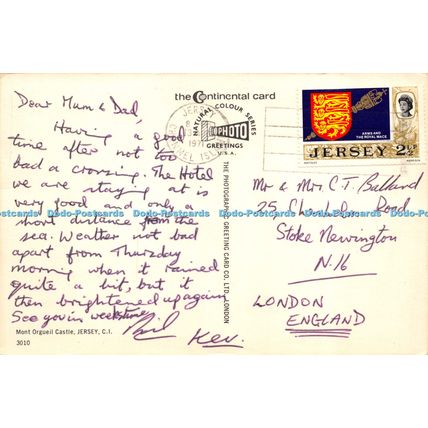 the Continental card
NATURAL COLOUR SERIES
PHOTO
GREETINGS
U.S.A.
JERSEY
1971
CHANNEL ISLES
ARMS AND
THE ROYAL MACE
JERSEY 2½
Dear Mum & Dad,
Having a good
time after not too
bad a crossing. The Hotel
we are staying at is
very good and only a
short distance from the
sea. Weather not bad
apart from Thursday
morning when it rained
quite a bit, but it
then brightened up again
See you in weeks time
Phil
Kev.
Mont Orgueil Castle, JERSEY, C.I.
3010
THE PHOTOGRAPHIC GREETING CARD CO. LTD., LONDON
Mr & Mrs C.T. Balland
25 Road
Stoke Newington
N.16
LONDON
ENGLAND
Dodo-Postcards Dodo-Postcards Dodo-Postcards Dodo-Postcards